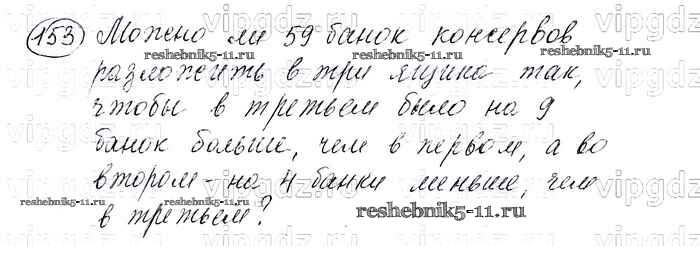 153 Можно ли 59 банок консервов
reshebnik5-11.ru
разложить в три ящика так,
чтобы в третьем было на 9
банок больше, чем в первом, а во
втором - на 4 банки меньше, чем
в третьем?
reshebnik5-11.ru
reshebnik5-11.ru
reshebnik5-11.ru
vipgdz
vipgdz
vipgdz